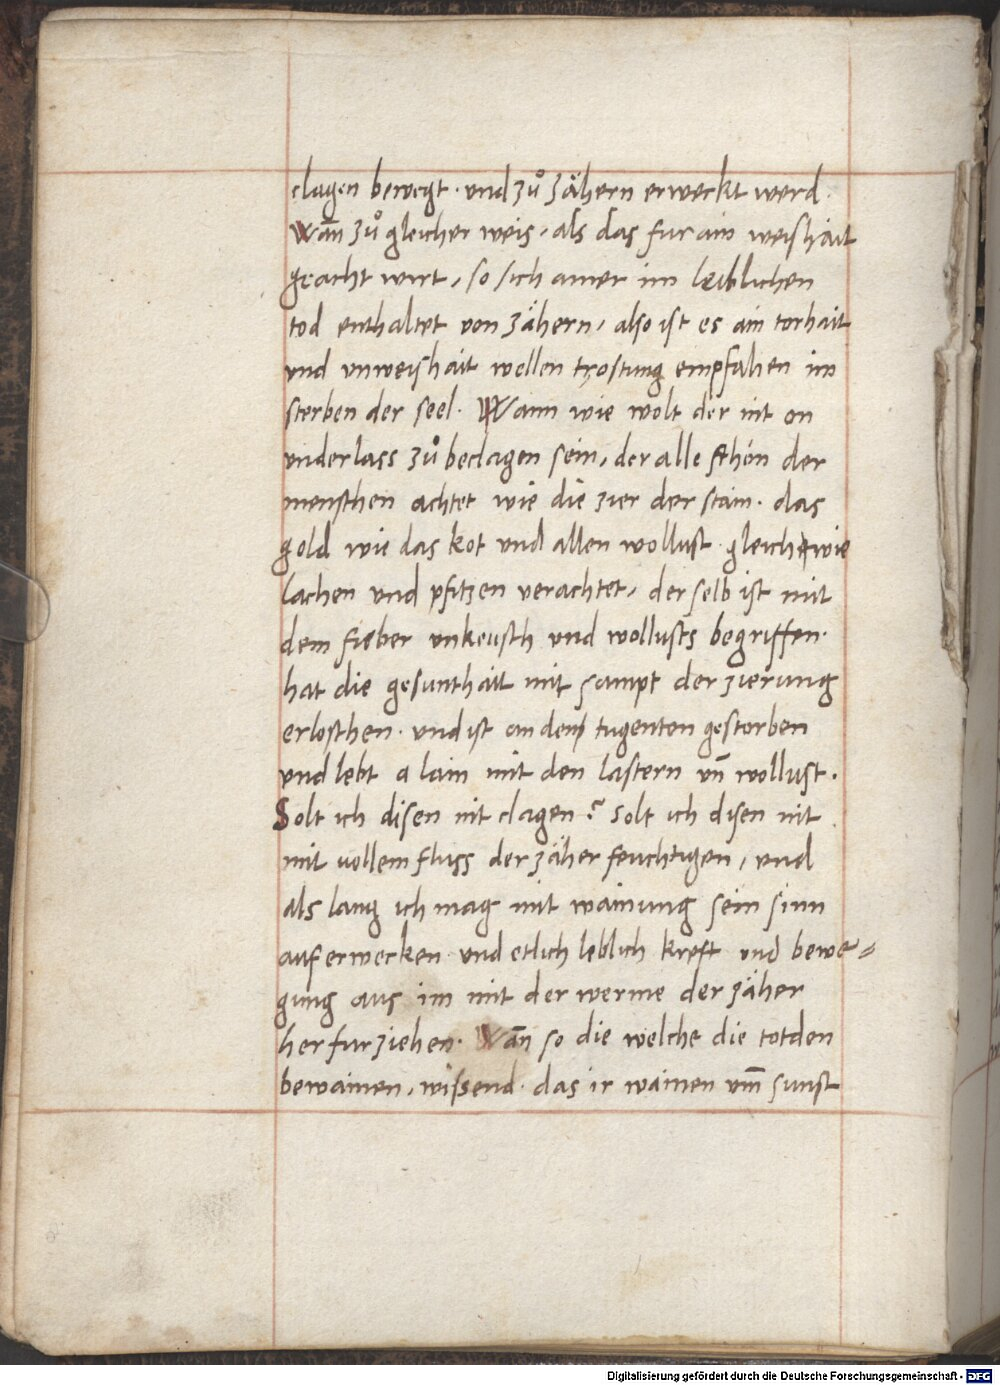 clagen bewegt · und zuͦ zähern erweckt werd ·
Wan̄ zuͦ gleicher weis, als das fur ain weishait
geacht wirt, so sich ainer im leiblichen
tod enthaltet von zähern, also ist es ain torhait
und unweishait wellen trostung empfahen im
sterben der seel · Wann wie wolt der nit on
underlass zuͦ beclagen sein, der alle schön der
menschen achtet wie die zier der stain · das
gold wie das kot und allen wollust · gleich wie
lachen und pfitzen verachtet, der selb ist mit
dem fieber unkeusch und wollusts begriffen ·
hat die gesunthait mit sampt der zierung
erloschen · und ist an den tugenten gestorben
und lebt alain mit den lastern un̄ wollust ·
Solt ich disen nit clagen? solt ich disen nit
mit vollem fluss der zäher feuchtigen, und
als lang ich mag mit wainung sein sinn
auferwecken und etlich leblich kreft und bewe⸗
gung aus im mit der werme der zäher
herfurziehen · Wan̄ so die welche die totden
bewainen, wissend · das ir wainen um̄ sunst
Digitalisierung gefördert durch die Deutsche Forschungsgemeinschaft - DFG